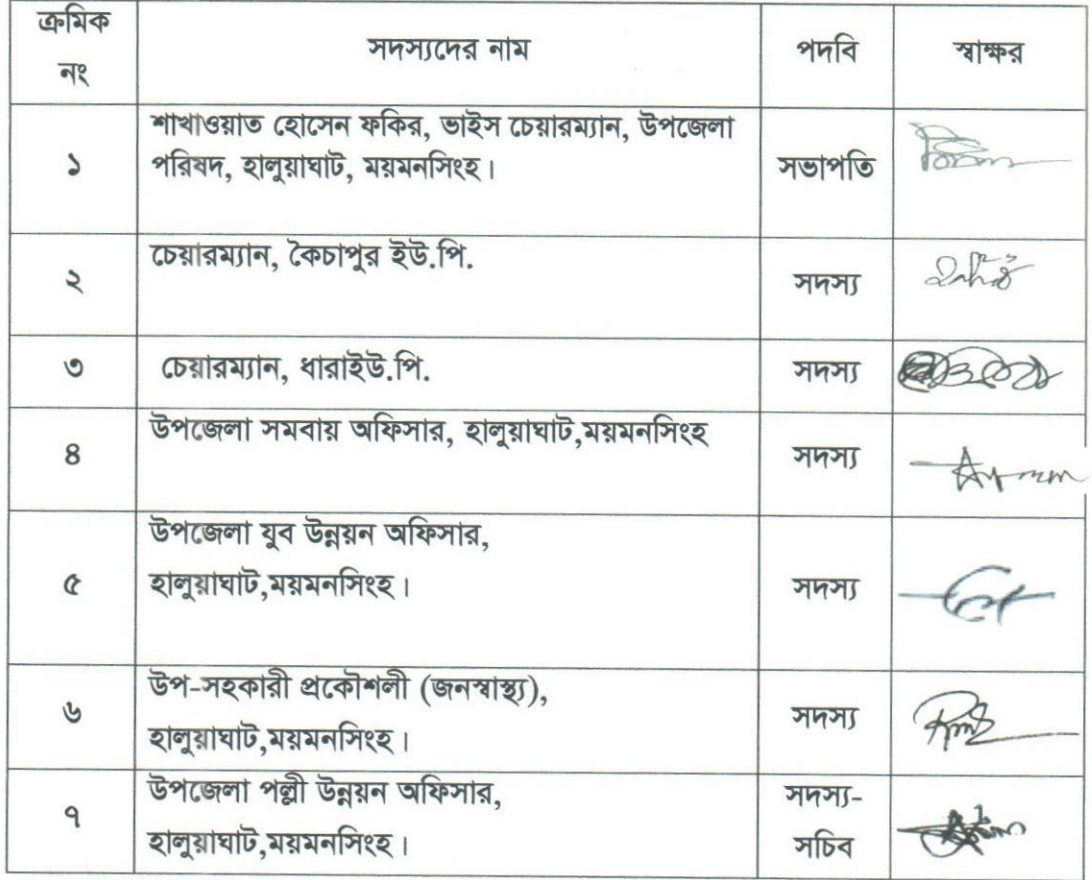 ক্রমিক নং সদস্যদের নাম পদবি স্বাক্ষর
১ শাখাওয়াত হোসেন ফকির, ভাইস চেয়ারম্যান, উপজেলা
পরিষদ, হালুয়াঘাট, ময়মনসিংহ। সভাপতি
২ চেয়ারম্যান, কৈচাপুর ইউ.পি. সদস্য
৩ চেয়ারম্যান, ধারাইউ.পি. সদস্য
৪ উপজেলা সমবায় অফিসার, হালুয়াঘাট,ময়মনসিংহ সদস্য
৫ উপজেলা যুব উন্নয়ন অফিসার,
হালুয়াঘাট,ময়মনসিংহ। সদস্য
৬ উপ-সহকারী প্রকৌশলী (জনস্বাস্থ্য),
হালুয়াঘাট,ময়মনসিংহ। সদস্য
৭ উপজেলা পল্লী উন্নয়ন অফিসার, সদস্য-
হালুয়াঘাট,ময়মনসিংহ। সচিব